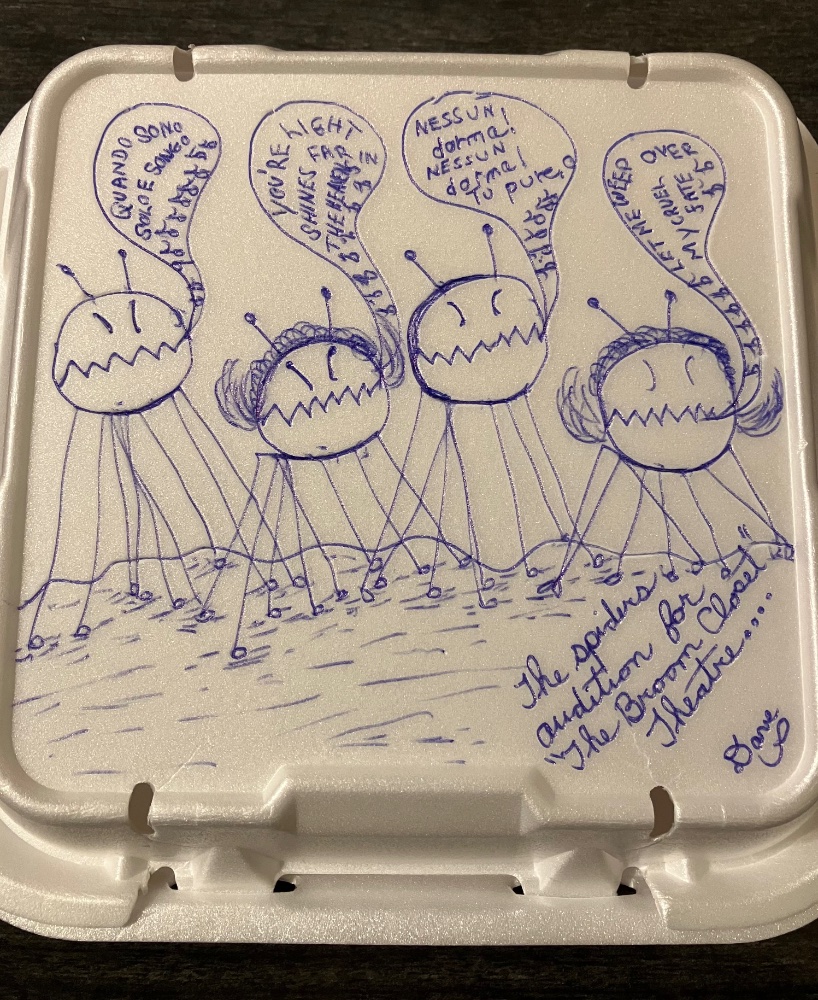 QUANDO SONO
SOLO E SONGO
YOU'RE LIGHT
SHINES FAR
IN
THE HEAVEN
NESSUN!
dorma!
NESSUN
dorma!
TU PURE O
LET ME WEEP
MY CRUEL
FATE OVER
The spiders
audition for
"The Broom Closet"
Theatre....
Dave